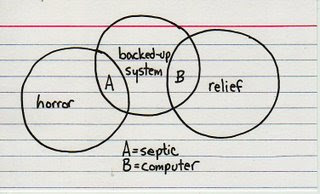 backed-up
system
A
B
horror
relief
A=septic
B=computer